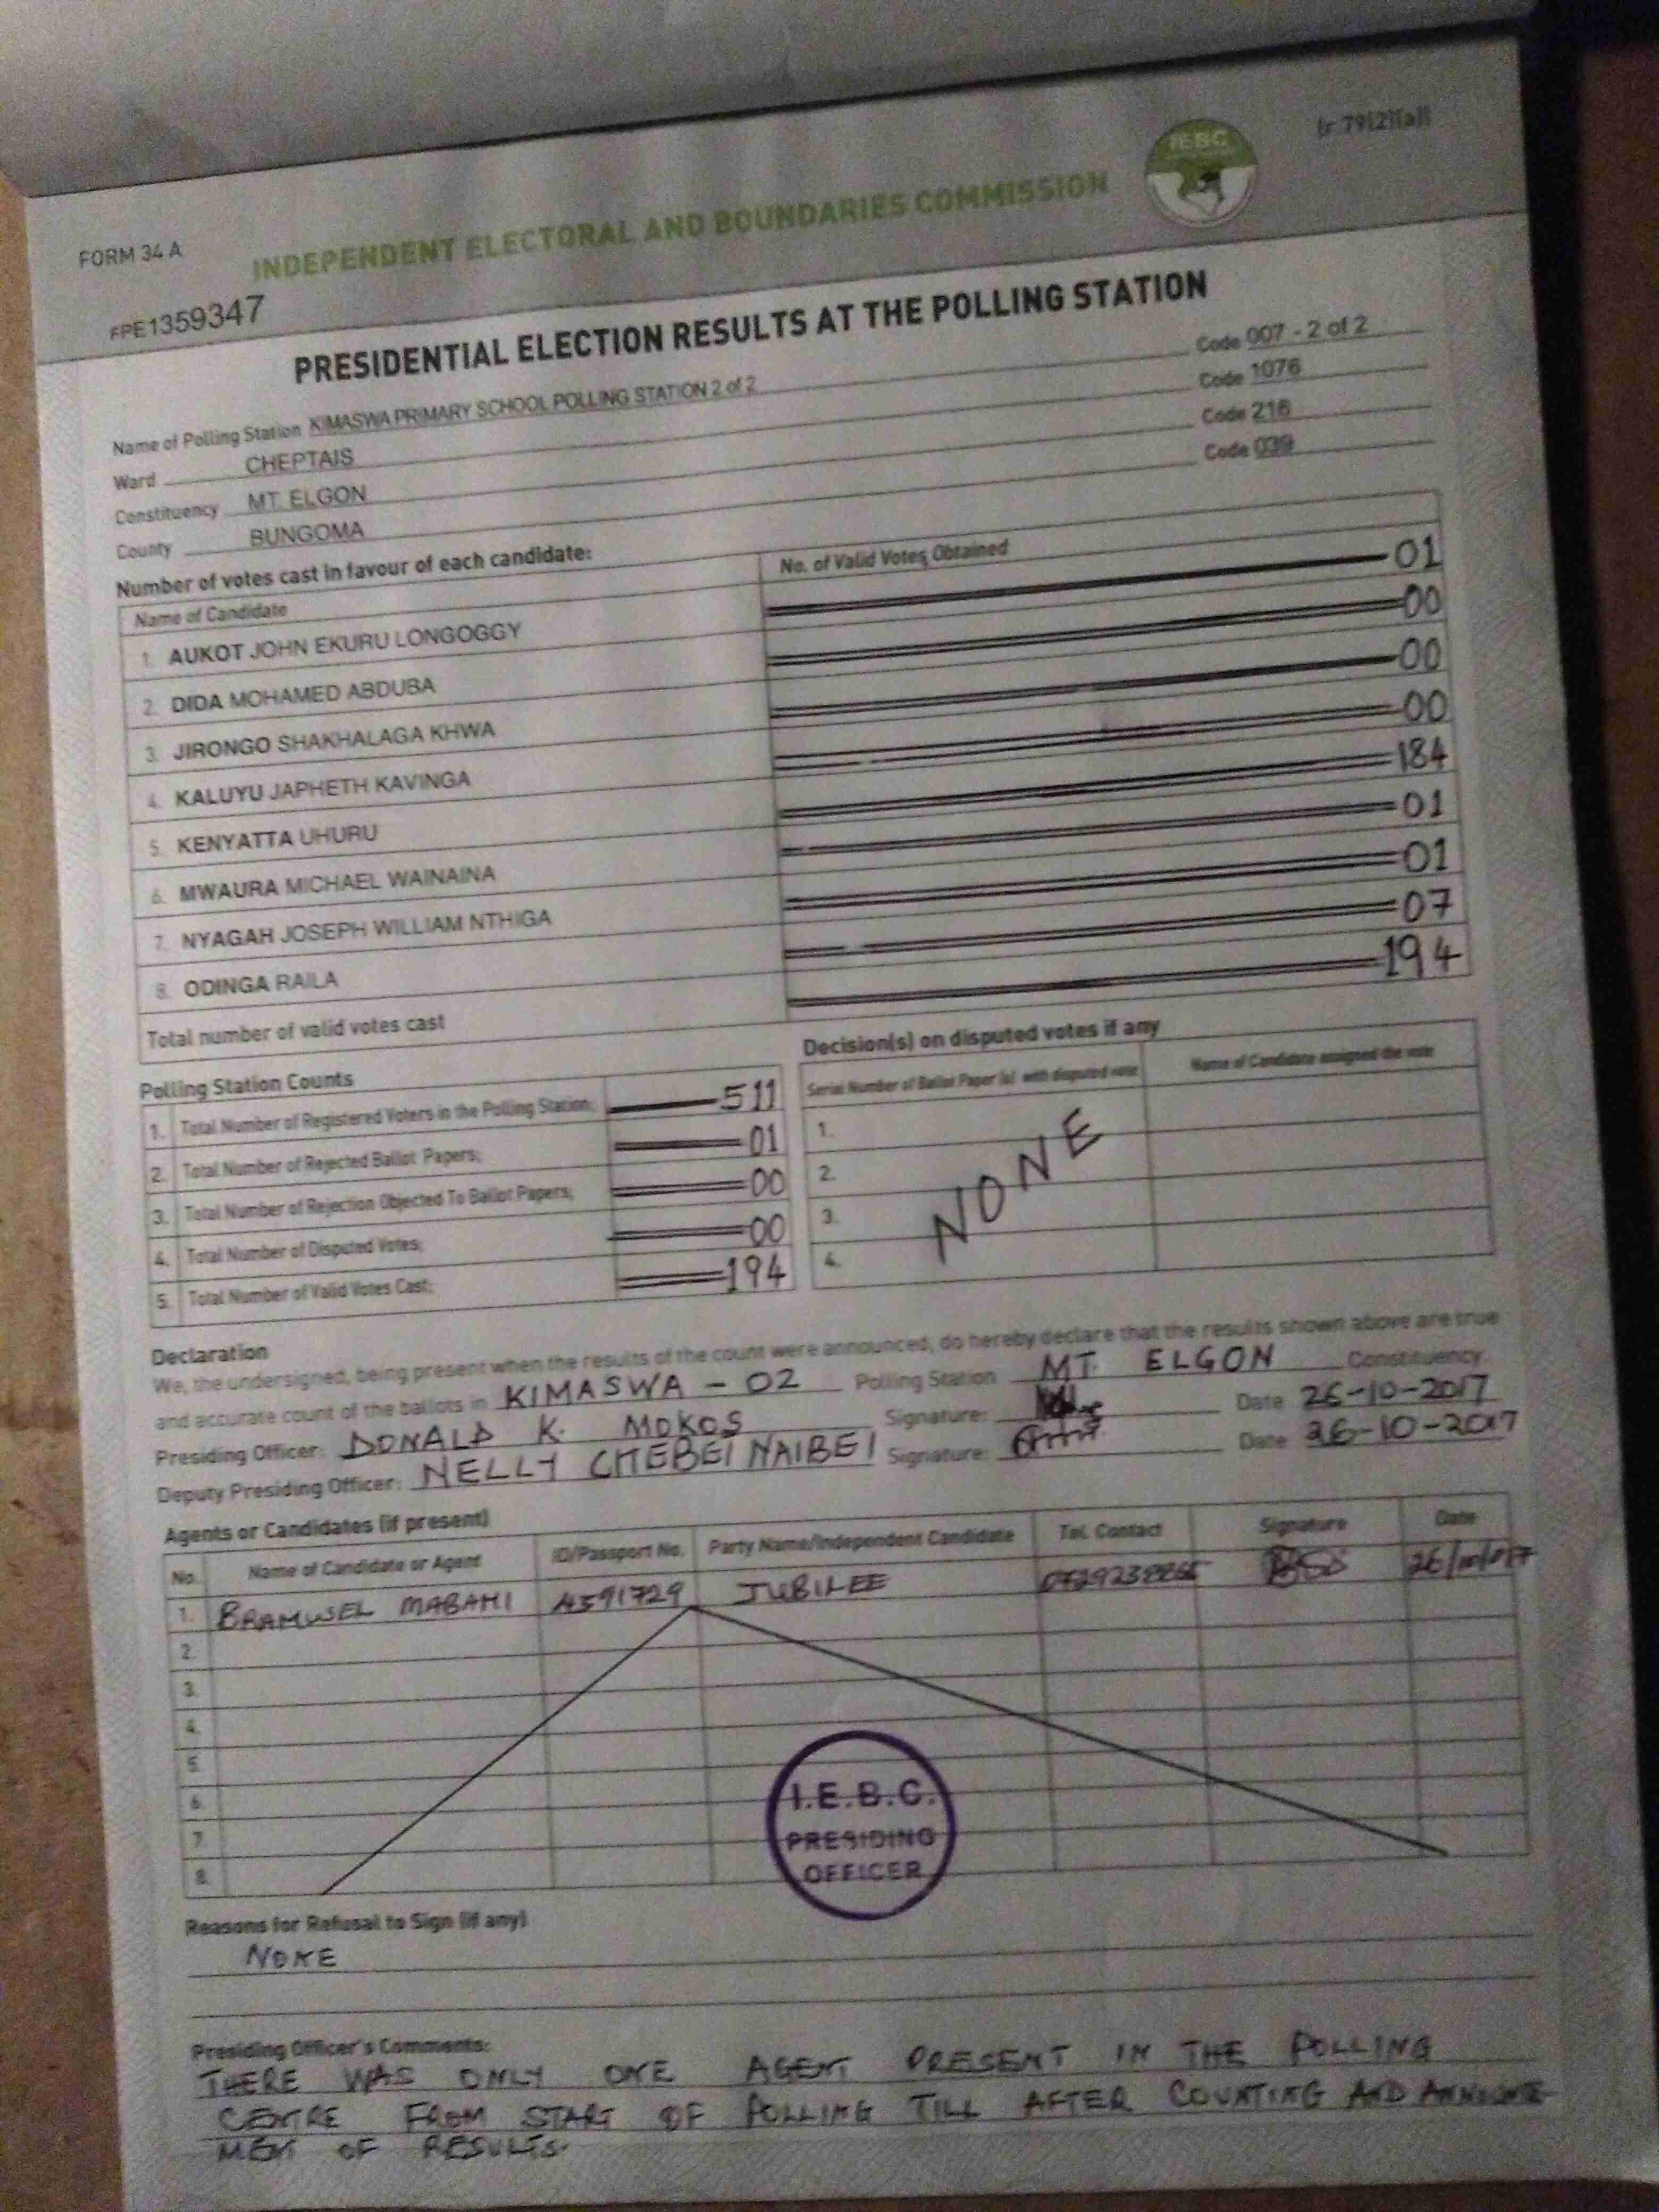 (r 79(2)(a))
IEBC
FORM 34 A
INDEPENDENT ELECTORAL AND BOUNDARIES COMMISSION
FPE1359347
PRESIDENTIAL ELECTION RESULTS AT THE POLLING STATION
Name of Polling Station KIMASWA PRIMARY SCHOOL POLLING STATION 2 of 2 Code 007 - 2 of 2
Ward CHEPTAIS Code 1076
Constituency MT. ELGON Code 216
County BUNGOMA Code 039
Number of votes cast in favour of each candidate:
Name of Candidate No. of Valid Votes Obtained
1. AUKOT JOHN EKURU LONGOGGY 01
2. DIDA MOHAMED ABDUBA 00
3. JIRONGO SHAKHALAGA KHWA 00
4. KALUYU JAPHETH KAVINGA 00
5. KENYATTA UHURU 184
6. MWAURA MICHAEL WAINAINA 01
7. NYAGAH JOSEPH WILLIAM NTHIGA 01
8. ODINGA RAILA 07
Total number of valid votes cast 194
Polling Station Counts
1. Total Number of Registered Voters in the Polling Station; 511
2. Total Number of Rejected Ballot Papers; 01
3. Total Number of Rejection Objected To Ballot Papers; 00
4. Total Number of Disputed Votes; 00
5. Total Number of Valid Votes Cast; 194
Decision(s) on disputed votes if any
Serial Number of Ballot Paper (s) with disputed vote Name of Candidate assigned the vote
1.
2.
3.
4.
NONE
Declaration
We, the undersigned, being present when the results of the count were announced, do hereby declare that the results shown above are true
and accurate count of the ballots in KIMASWA - 02 Polling Station MT. ELGON Constituency.
Presiding Officer: DONALD K. MOKOS Signature: Date 26-10-2017
Deputy Presiding Officer: NELLY CHEBEI NAIBEI Signature: Date 26-10-2017
Agents or Candidates (if present)
No. Name of Candidate or Agent ID/Passport No. Party Name/Independent Candidate Tel. Contact Signature Date
1. BRAMWEL MABAHI 4591729 JUBILEE
2.
3.
4.
5.
6.
7.
8.
I.E.B.C.
PRESIDING
OFFICER
Reasons for Refusal to Sign (if any)
NONE
Presiding Officer's Comments:
THERE WAS ONLY ONE AGENT PRESENT IN THE POLLING
CENTRE FROM START OF POLLING TILL AFTER COUNTING AND ANNOUNCE-
MENT OF RESULTS.